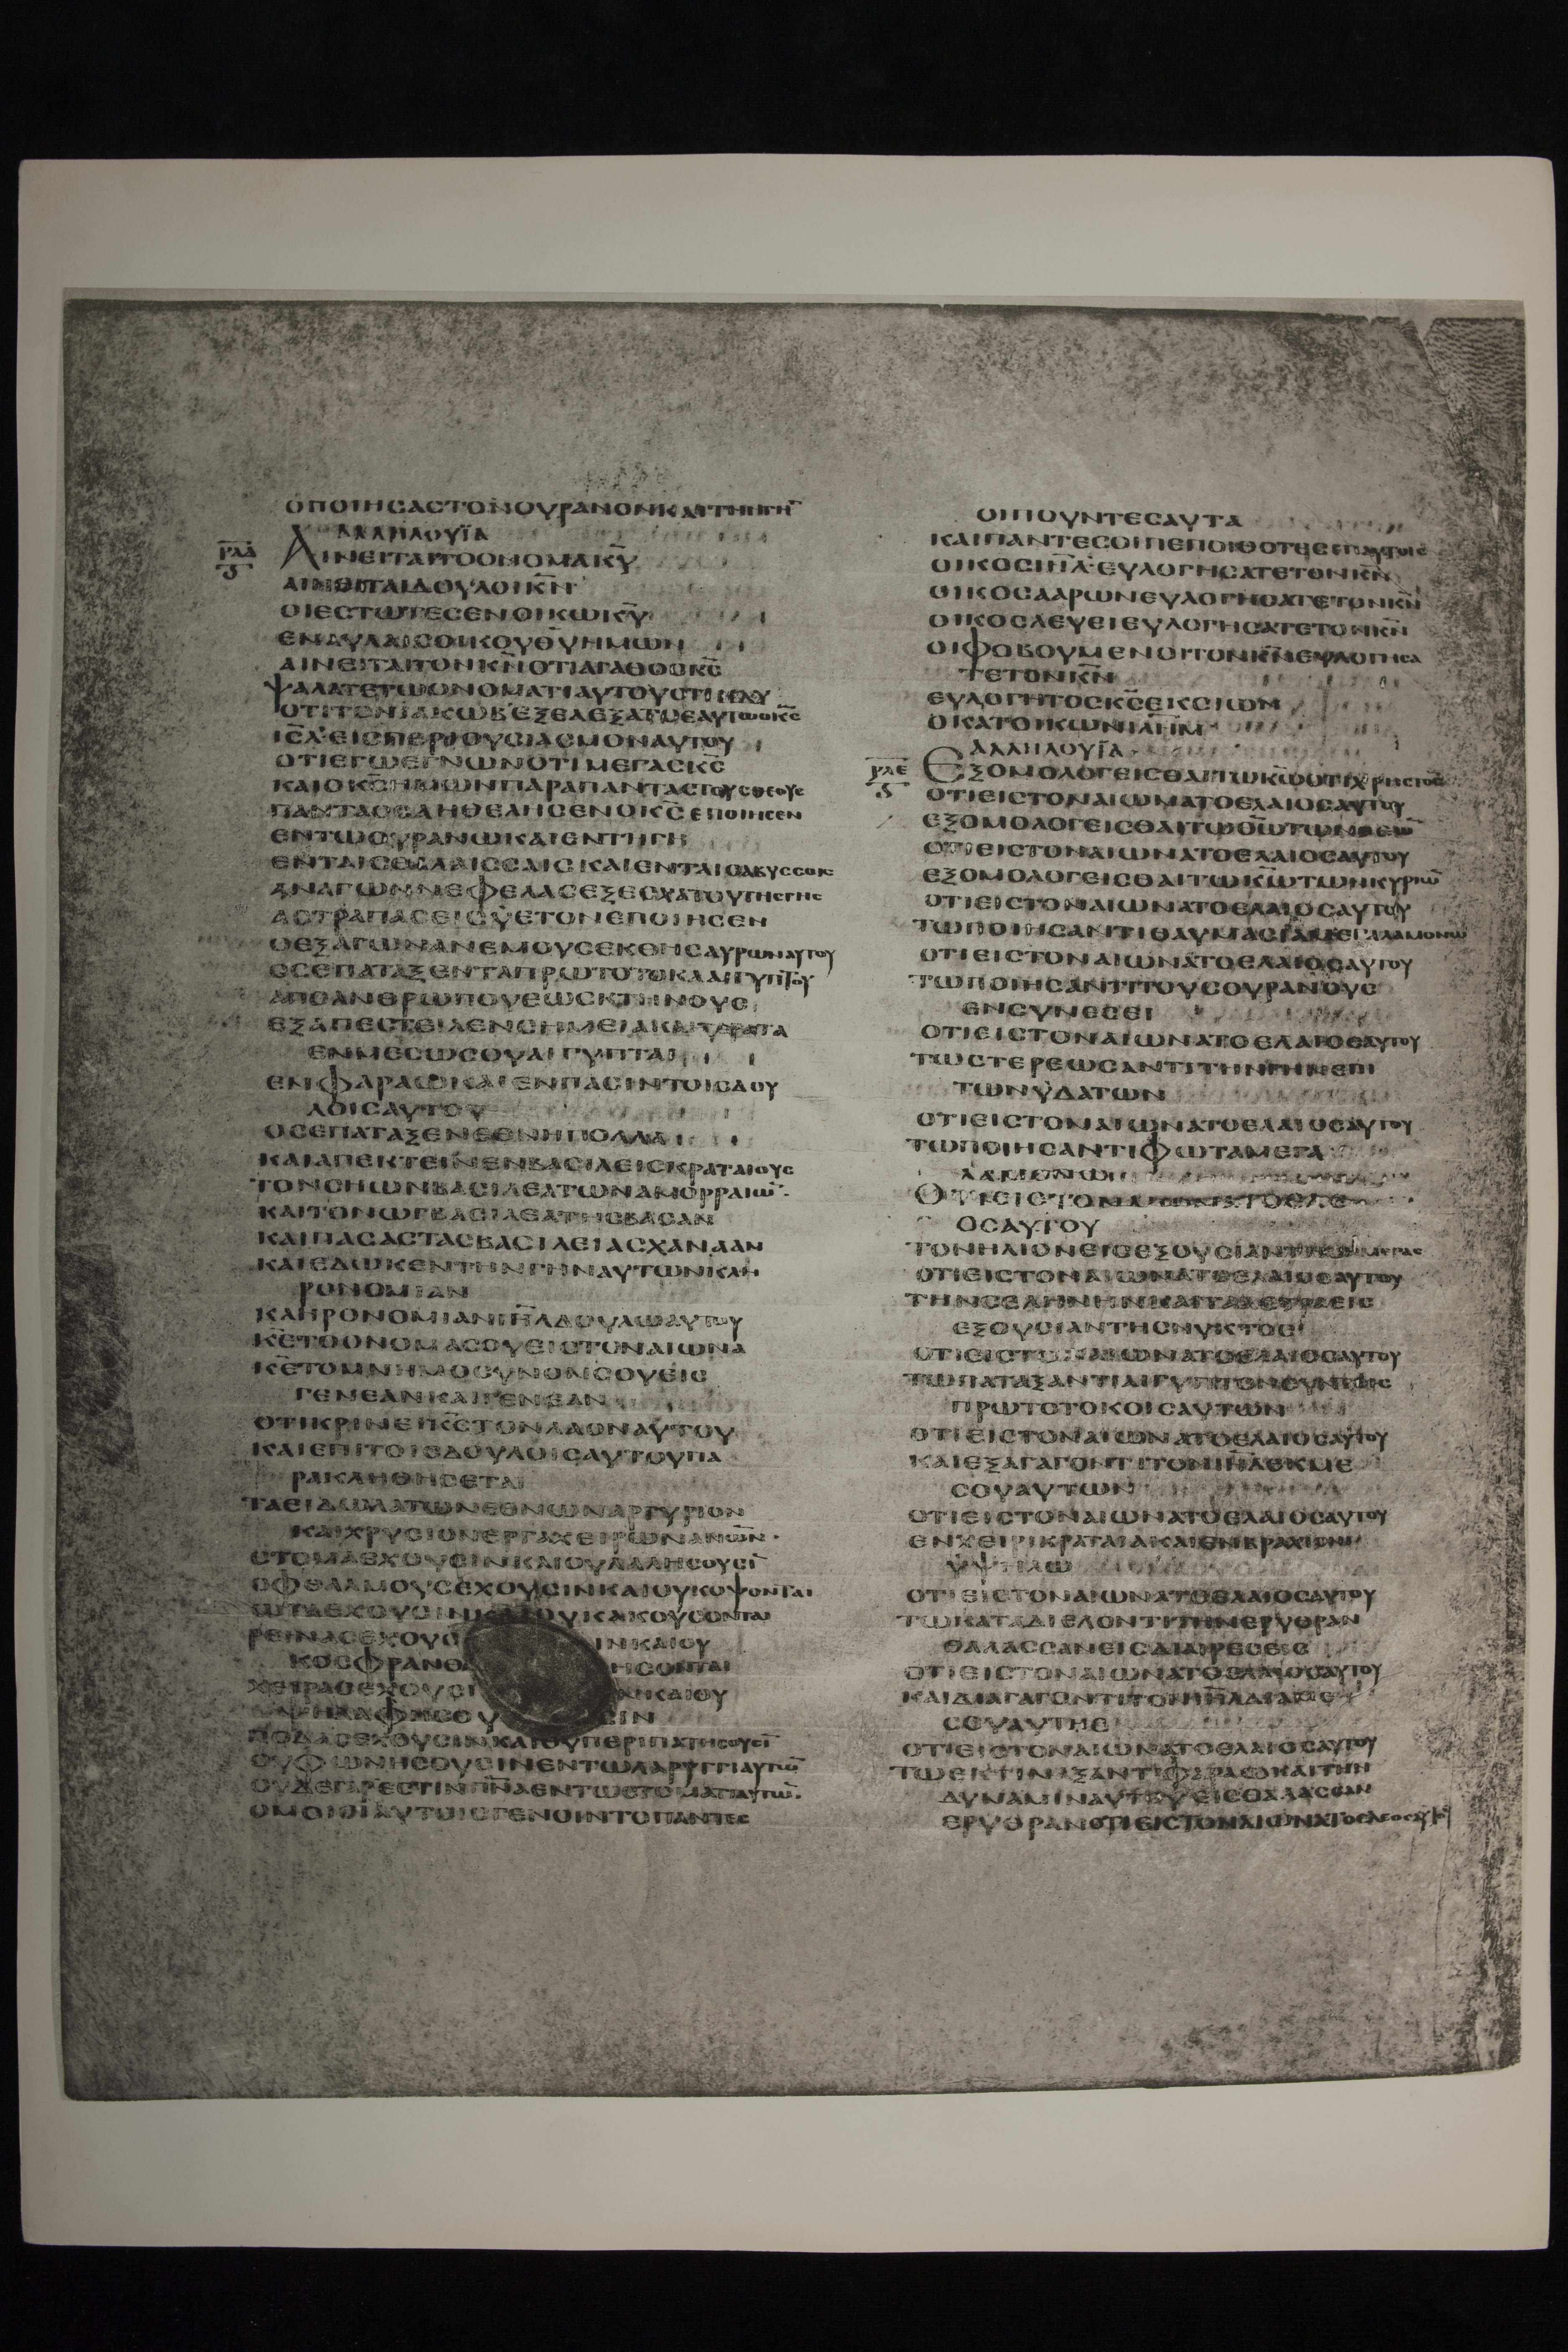 ΟΠΟΙΗϹΑϹΤΟΝΟΥΡΑΝΟΝΚΑΙΤΗΝΓΗ̅
ΑΛΛΗΛΟΥΪΑ
ΡΛΔ
ΑΙΝΕΙΤΑΙΤΟΟΝΟΜΑΚ̅Υ̅
ΑΙΝΕΙΤΑΙΔΟΥΛΟΙΚ̅Ν̅
ΟΙΕϹΤΩΤΕϹΕΝΟΙΚΩΚ̅Υ̅
ΕΝΑΥΛΑΙϹΟΙΚΟΥΘ̅Υ̅ΗΜΩΝ
ΑΙΝΕΙΤΑΙΤΟΝΚ̅Ν̅ΟΤΙΑΓΑΘΟϹΚ̅Ϲ̅
ΨΑΛΑΤΕΤΩΟΝΟΜΑΤΙΑΥΤΟΥΟΤΙΚΑΛΟΥ
ΟΤΙΤΟΝΙΑΚΩΒΕΞΕΛΕΞΑΤΟΕΑΥΤΩΟΚ̅Ϲ̅
ΙϹ̅Λ̅ΕΙϹΠΕΡΙΟΥϹΙΑϹΜΟΝΑΥΤΟΥ
ΟΤΙΕΓΩΕΓΝΩΝΟΤΙΜΕΓΑϹΚ̅Ϲ̅
ΚΑΙΟΚ̅Ϲ̅ΗΜΩΝΠΑΡΑΠΑΝΤΑϹΤΟΥϹΘΕΟΥϹ
ΠΑΝΤΑΟϹΑΗΘΕΛΗϹΕΝΟΚ̅Ϲ̅ΕΠΟΙΗϹΕΝ
ΕΝΤΩΟΥΡΑΝΩΚΑΙΕΝΤΗΓΗ
ΕΝΤΑΙϹΘΑΛΑΙϹϹΑΙϹΚΑΙΕΝΤΑΙϹΑΒΥϹϹΟΙϹ
ΑΝΑΓΩΝΝΕΦΕΛΑϹΕΞΕϹΧΑΤΟΥΤΗϹΓΗϹ
ΑϹΤΡΑΠΑϹΕΙϹΥΕΤΟΝΕΠΟΙΗϹΕΝ
ΟΕΞΑΓΩΝΑΝΕΜΟΥϹΕΚΘΗϹΑΥΡΩΝΑΥΤΟΥ
ΟϹΕΠΑΤΑΞΕΝΤΑΠΡΩΤΟΤΟΚΑΑΙΓΥΠΤΟΥ
ΑΠΟΑΝΘΡΩΠΟΥΕΩϹΚΤΗΝΟΥϹ
ΕΞΑΠΕϹΤΕΙΛΕΝϹΗΜΕΙΑΚΑΙΤΕΡΑΤΑ
ΕΝΜΕϹΩϹΟΥΑΙΓΥΠΤΑΙ
ΕΝΦΑΡΑΩΚΑΙΕΝΠΑϹΙΝΤΟΙϹΔΟΥ
ΛΟΙϹΑΥΤΟΥ
ΟϹΕΠΑΤΑΞΕΝΕΘΝΗΠΟΛΛΑ
ΚΑΙΑΠΕΚΤΕΙΝΕΝΒΑϹΙΛΕΙϹΚΡΑΤΑΙΟΥϹ
ΤΟΝϹΗΩΝΒΑϹΙΛΕΑΤΩΝΑΜΟΡΡΑΙΩ̅
ΚΑΙΤΟΝΩΓΒΑϹΙΛΕΑΤΗϹΒΑϹΑΝ
ΚΑΙΠΑϹΑϹΤΑϹΒΑϹΙΛΕΙΑϹΧΑΝΑΑΝ
ΚΑΙΕΔΩΚΕΝΤΗΝΓΗΝΑΥΤΩΝΚΛΗ
ΡΟΝΟΜΙΑΝ
ΚΛΗΡΟΝΟΜΙΑΝΙΗ̅Λ̅ΔΟΥΛΩΑΥΤΟΥ
Κ̅Ε̅ΤΟΟΝΟΜΑϹΟΥΕΙϹΤΟΝΑΙΩΝΑ
Κ̅Ε̅ΤΟΜΝΗΜΟϹΥΝΟΝϹΟΥΕΙϹ
ΓΕΝΕΑΝΚΑΙΓΕΝΕΑΝ
ΟΤΙΚΡΙΝΕΙΚ̅Ϲ̅ΤΟΝΛΑΟΝΑΥΤΟΥ
ΚΑΙΕΠΙΤΟΙϹΔΟΥΛΟΙϹΑΥΤΟΥΠΑ
ΡΑΚΛΗΘΗϹΕΤΑΙ
ΤΑΕΙΔΩΛΑΤΩΝΕΘΝΩΝΑΡΓΥΡΙΟΝ
ΚΑΙΧΡΥϹΙΟΝΕΡΓΑΧΕΙΡΩΝΑΝ̅Ω̅Ν̅
ϹΤΟΜΑΕΧΟΥϹΙΝΚΑΙΟΥΛΑΛΗϹΟΥϹΙ̅
ΟΦΘΑΛΜΟΥϹΕΧΟΥϹΙΝΚΑΙΟΥΚΟΨΟΝΤΑΙ
ΩΤΑΕΧΟΥϹΙΝΚΑΙΟΥΚΑΚΟΥϹΟΝΤΑΙ
ΡΕΙΝΑϹΕΧΟΥϹΙΝΚΑΙΟΥ
ΚΟϹΦΡΑΝΘΗϹΟΝΤΑΙ
ΧΕΙΡΑϹΕΧΟΥϹΙΝΚΑΙΟΥ
ΨΗΛΑΦΗϹΟΥϹΕΙΝ
ΠΟΔΑϹΕΧΟΥϹΙΝΚΑΙΟΥΠΕΡΙΠΑΤΗϹΟΥϹΙ̅
ΟΥΦΩΝΗϹΟΥϹΙΝΕΝΤΩΛΑΡΥΓΓΙΑΥΤΩ̅
ΟΥΔΕΓΑΡΕϹΤΙΝΠ̅Ν̅Α̅ΕΝΤΩϹΤΟΜΑΤΙΑΥΤΩ̅
ΟΜΟΙΟΙΑΥΤΟΙϹΓΕΝΟΙΝΤΟΠΑΝΤΕϹ
ΟΙΠΟΥΝΤΕϹΑΥΤΑ
ΚΑΙΠΑΝΤΕϹΟΙΠΕΠΟΙΘΟΤΕϹΕΠΑΥΤΟΙϹ
ΟΙΚΟϹΙΗ̅Λ̅ΕΥΛΟΓΗϹΑΤΕΤΟΝΚ̅Ν̅
ΟΙΚΟϹΑΑΡΩΝΕΥΛΟΓΗϹΑΤΕΤΟΝΚ̅Ν̅
ΟΙΚΟϹΛΕΥΕΙΕΥΛΟΓΗϹΑΤΕΤΟΝΚ̅Ν̅
ΟΙΦΟΒΟΥΜΕΝΟΙΤΟΝΚ̅Ν̅ΕΥΛΟΓΗϹΑ
ΤΕΤΟΝΚ̅Ν̅
ΕΥΛΟΓΗΤΟϹΚ̅Ϲ̅ΕΚϹΙΩΝ
ΟΚΑΤΟΙΚΩΝΙΛ̅Η̅Μ̅
ΑΛΛΗΛΟΥΪΑ
ΡΛΕ
ΕΞΟΜΟΛΟΓΕΙϹΘΑΙΤΩΚ̅Ω̅ΟΤΙΧΡΗϹΤΟϹ
ΟΤΙΕΙϹΤΟΝΑΙΩΝΑΤΟΕΛΑΙΟϹΑΥΤΟΥ
ΕΞΟΜΟΛΟΓΕΙϹΘΑΙΤΩΘ̅Ω̅ΤΩΝΘΕΩ̅
ΟΤΙΕΙϹΤΟΝΑΙΩΝΑΤΟΕΛΑΙΟϹΑΥΤΟΥ
ΕΞΟΜΟΛΟΓΕΙϹΘΑΙΤΩΚ̅Ω̅ΤΩΝΚΥΡΙΩ̅
ΟΤΙΕΙϹΤΟΝΑΙΩΝΑΤΟΕΛΑΙΟϹΑΥΤΟΥ
ΤΩΠΟΙΗϹΑΝΤΙΘΑΥΜΑϹΙΑΜΕΓΑΛΑΜΟΝΩ
ΟΤΙΕΙϹΤΟΝΑΙΩΝΑΤΟΕΛΑΙΟϹΑΥΤΟΥ
ΤΩΠΟΙΗϹΑΝΤΙΤΟΥϹΟΥΡΑΝΟΥϹ
ΕΝϹΥΝΕϹΕΙ
ΟΤΙΕΙϹΤΟΝΑΙΩΝΑΤΟΕΛΑΙΟϹΑΥΤΟΥ
ΤΩϹΤΕΡΕΩϹΑΝΤΙΤΗΝΓΗΝΕΠΙ
ΤΩΝΥΔΑΤΩΝ
ΟΤΙΕΙϹΤΟΝΑΙΩΝΑΤΟΕΛΑΙΟϹΑΥΤΟΥ
ΤΩΠΟΙΗϹΑΝΤΙΦΩΤΑΜΕΓΑ
ΛΑΜΟΝΩ
ΟΤΙΕΙϹΤΟΝΑΙΩΝΑΤΟΕΛΕ
ΟϹΑΥΤΟΥ
ΤΟΝΗΛΙΟΝΕΙϹΕΞΟΥϹΙΑΝΤΗϹΗΜΕΡΑϹ
ΟΤΙΕΙϹΤΟΝΑΙΩΝΑΤΟΕΛΑΙΟϹΑΥΤΟΥ
ΤΗΝϹΕΛΗΝΗΝΚΑΙΤΑ
ΕΞΟΥϹΙΑΝΤΗϹΝΥΚΤΟϹ
ΟΤΙΕΙϹΤΟΝΑΙΩΝΑΤΟΕΛΑΙΟϹΑΥΤΟΥ
ΤΩΠΑΤΑΞΑΝΤΙΑΙΓΥΠΤΟΝϹΥΝΤΟΙϹ
ΠΡΩΤΟΤΟΚΟΙϹΑΥΤΩΝ
ΟΤΙΕΙϹΤΟΝΑΙΩΝΑΤΟΕΛΑΙΟϹΑΥΤΟΥ
ΚΑΙΕΞΑΓΑΓΟΝΤΙΤΟΝΙΗ̅Λ̅ΕΚΜΕ
ϹΟΥΑΥΤΩΝ
ΟΤΙΕΙϹΤΟΝΑΙΩΝΑΤΟΕΛΑΙΟϹΑΥΤΟΥ
ΕΝΧΕΙΡΙΚΡΑΤΑΙΑΚΑΙΕΝΒΡΑΧΙΟΝΙ
ΥΨΗΛΩ
ΟΤΙΕΙϹΤΟΝΑΙΩΝΑΤΟΕΛΑΙΟϹΑΥΤΟΥ
ΤΩΚΑΤΑΔΙΕΛΟΝΤΙΤΗΝΕΡΥΘΡΑΝ
ΘΑΛΑϹϹΑΝΕΙϹΔΙΑΙΡΕϹΕΙϹ
ΟΤΙΕΙϹΤΟΝΑΙΩΝΑΤΟΕΛΑΙΟϹΑΥΤΟΥ
ΚΑΙΔΙΑΓΑΓΟΝΤΙΤΟΝΙΗ̅Λ̅ΔΙΑΜΕ
ϹΟΥΑΥΤΗϹ
ΟΤΙΕΙϹΤΟΝΑΙΩΝΑΤΟΕΛΑΙΟϹΑΥΤΟΥ
ΤΩΕΚΤΙΝΑΞΑΝΤΙΦΑΡΑΩΚΑΙΤΗΝ
ΔΥΝΑΜΙΝΑΥΤΟΥΕΙϹΘΑΛΑϹϹΑΝ
ΕΡΥΘΡΑΝΟΤΙΕΙϹΤΟΝΑΙΩΝΑΤΟΕΛΕΟϹΑΥΤΟΥ